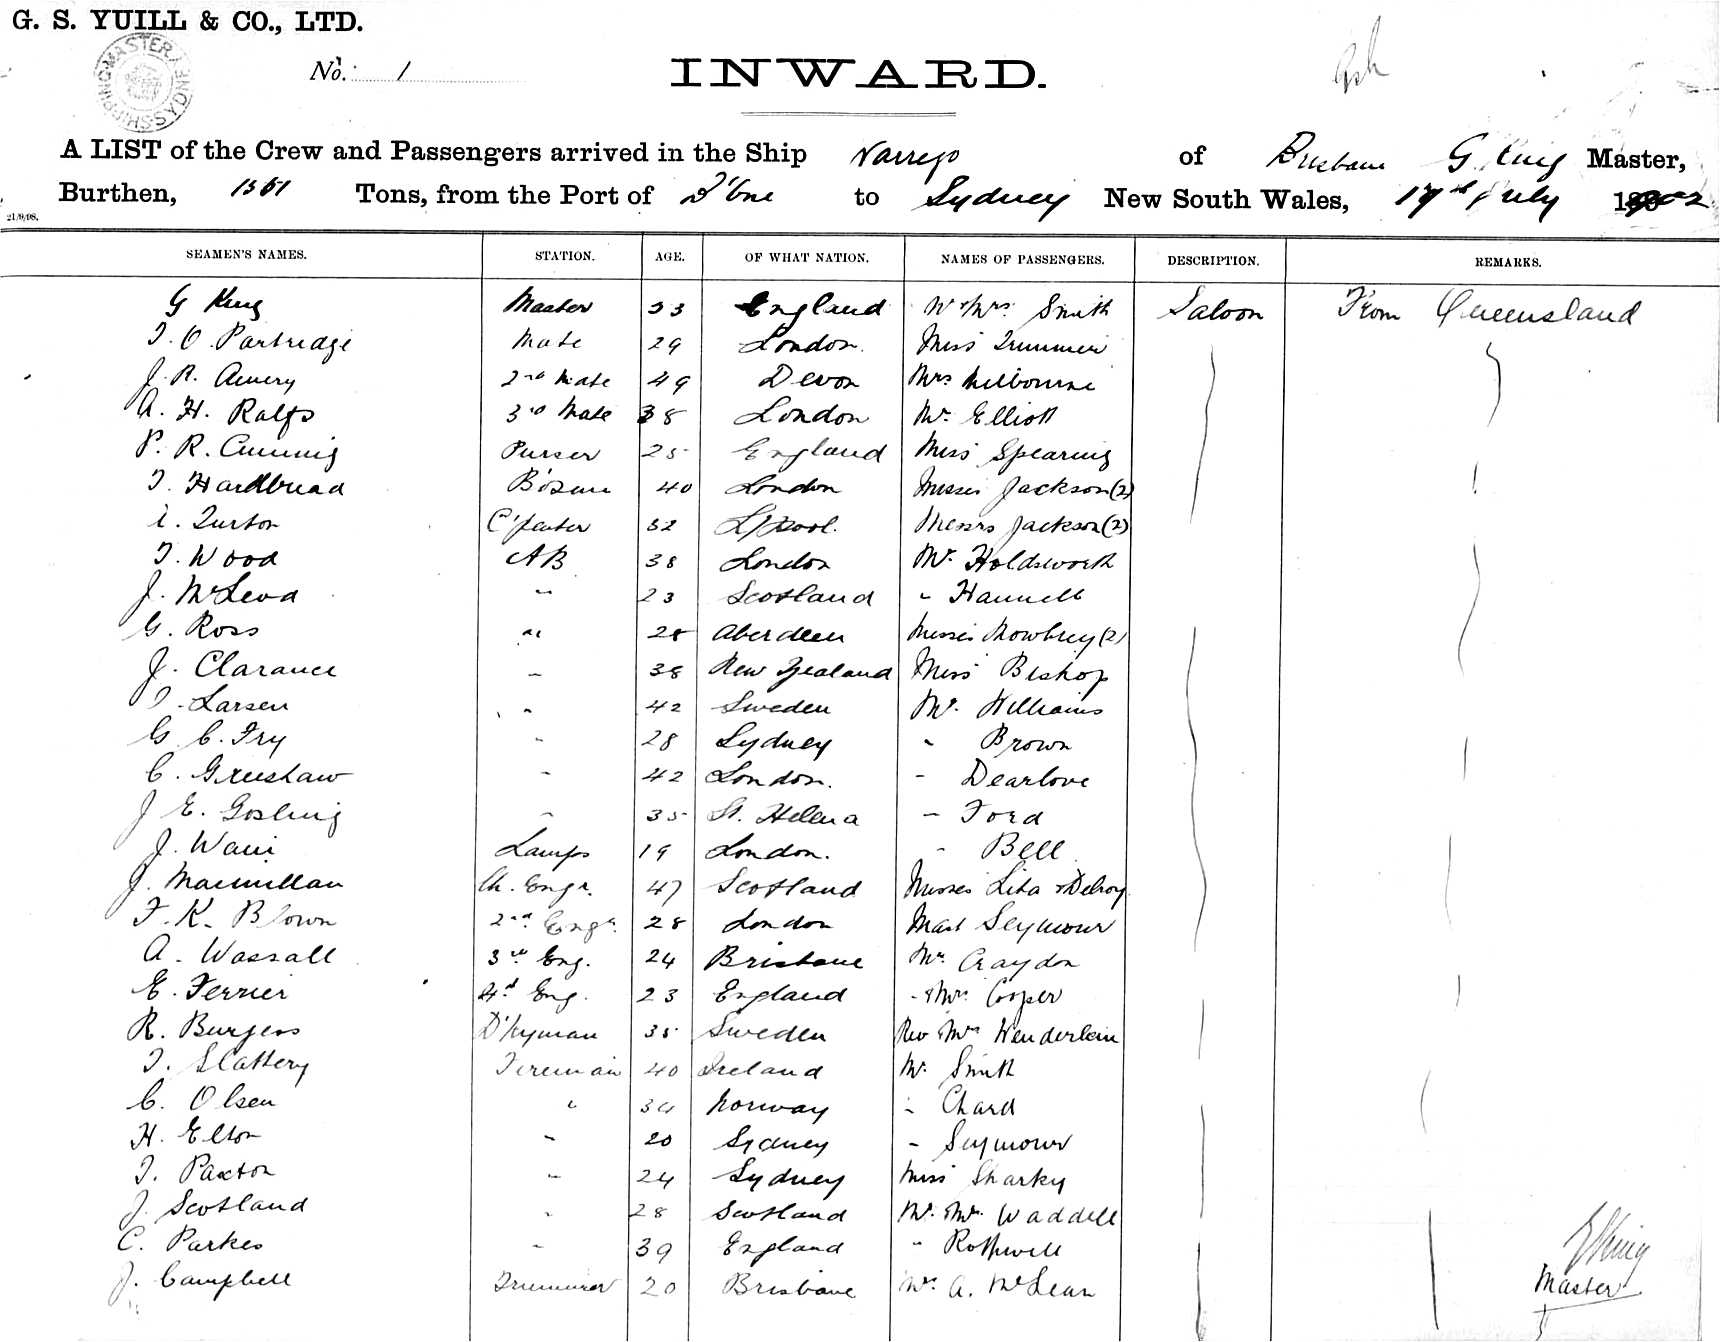 G. S. YUILL & CO., LTD.
No. 1
INWARD.
A LIST of the Crew and Passengers arrived in the Ship of Brisbane G King Master,
Burthen, Tons, from the Port of to Sydney New South Wales, July
21/9/98.
SEAMEN'S NAMES. STATION. AGE. OF WHAT NATION. NAMES OF PASSENGERS. DESCRIPTION. REMARKS.
G King Master England Smith Saloon From Queensland
T. O. Partridge Mate 29 London. Miss
J. R. Avery 2nd Mate 49 Devon Mrs
A. H. Ralfs 3rd Mate 38 London Mr Elliott
P. R. Cumming Purser 25 England Miss Spearing
T. Hardbread 40 London Misses Jackson (2)
Turton 32 L'pool. Messrs Jackson (2)
T. Wood AB 38 London Mr Holdsworth
J. McLeod " 23 Scotland "
G. Ross " Aberdeen Misses Mowbrey (2)
J. Clarance " 38 New Zealand Miss Bishop
Larsen " 42 Sweden Mr. Williams
G. C. Fry " 28 Sydney " Brown
C. Greeshaw " 42 London. " Dearlove
J E. Gosling " 35 St. Helena " Ford
J. Lamps 19 London. " Bell
J. Macmillan Ch. Engr. 47 Scotland Misses Lita & Delroy
F. K. Brown 2nd Engr. 28 London Mast Seymour
A. Wassall 3rd Eng. 24 Brisbane Mr Craydon
E. Ferrier 4th Eng. 23 England " & Mrs Cooper
R. Burgess D'kyman 35 Sweden Rev & Mrs Henderlein
T. Slattery Fireman 40 Ireland Mr Smith
C. Olsen " 34 Norway " Chard
H. Elton " 20 Sydney " Seymour
T. Paxton " 24 Sydney Miss Sharky
J. Scotland " 28 Scotland Mr. & Mrs. Waddell
C. Parkes " 39 England " Rothwell
J. Campbell Trimmer 20 Brisbane Mr. A. McLean
G King
Master